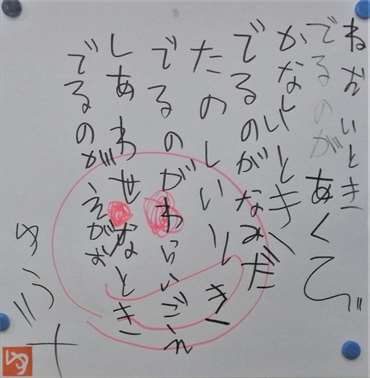 ねむいとき
でるのがあくび
かなしいとき
でるのがなみだ
たのしいとき
でるのがわらいごえ
しあわせなとき
でるのがえがお
ゆ